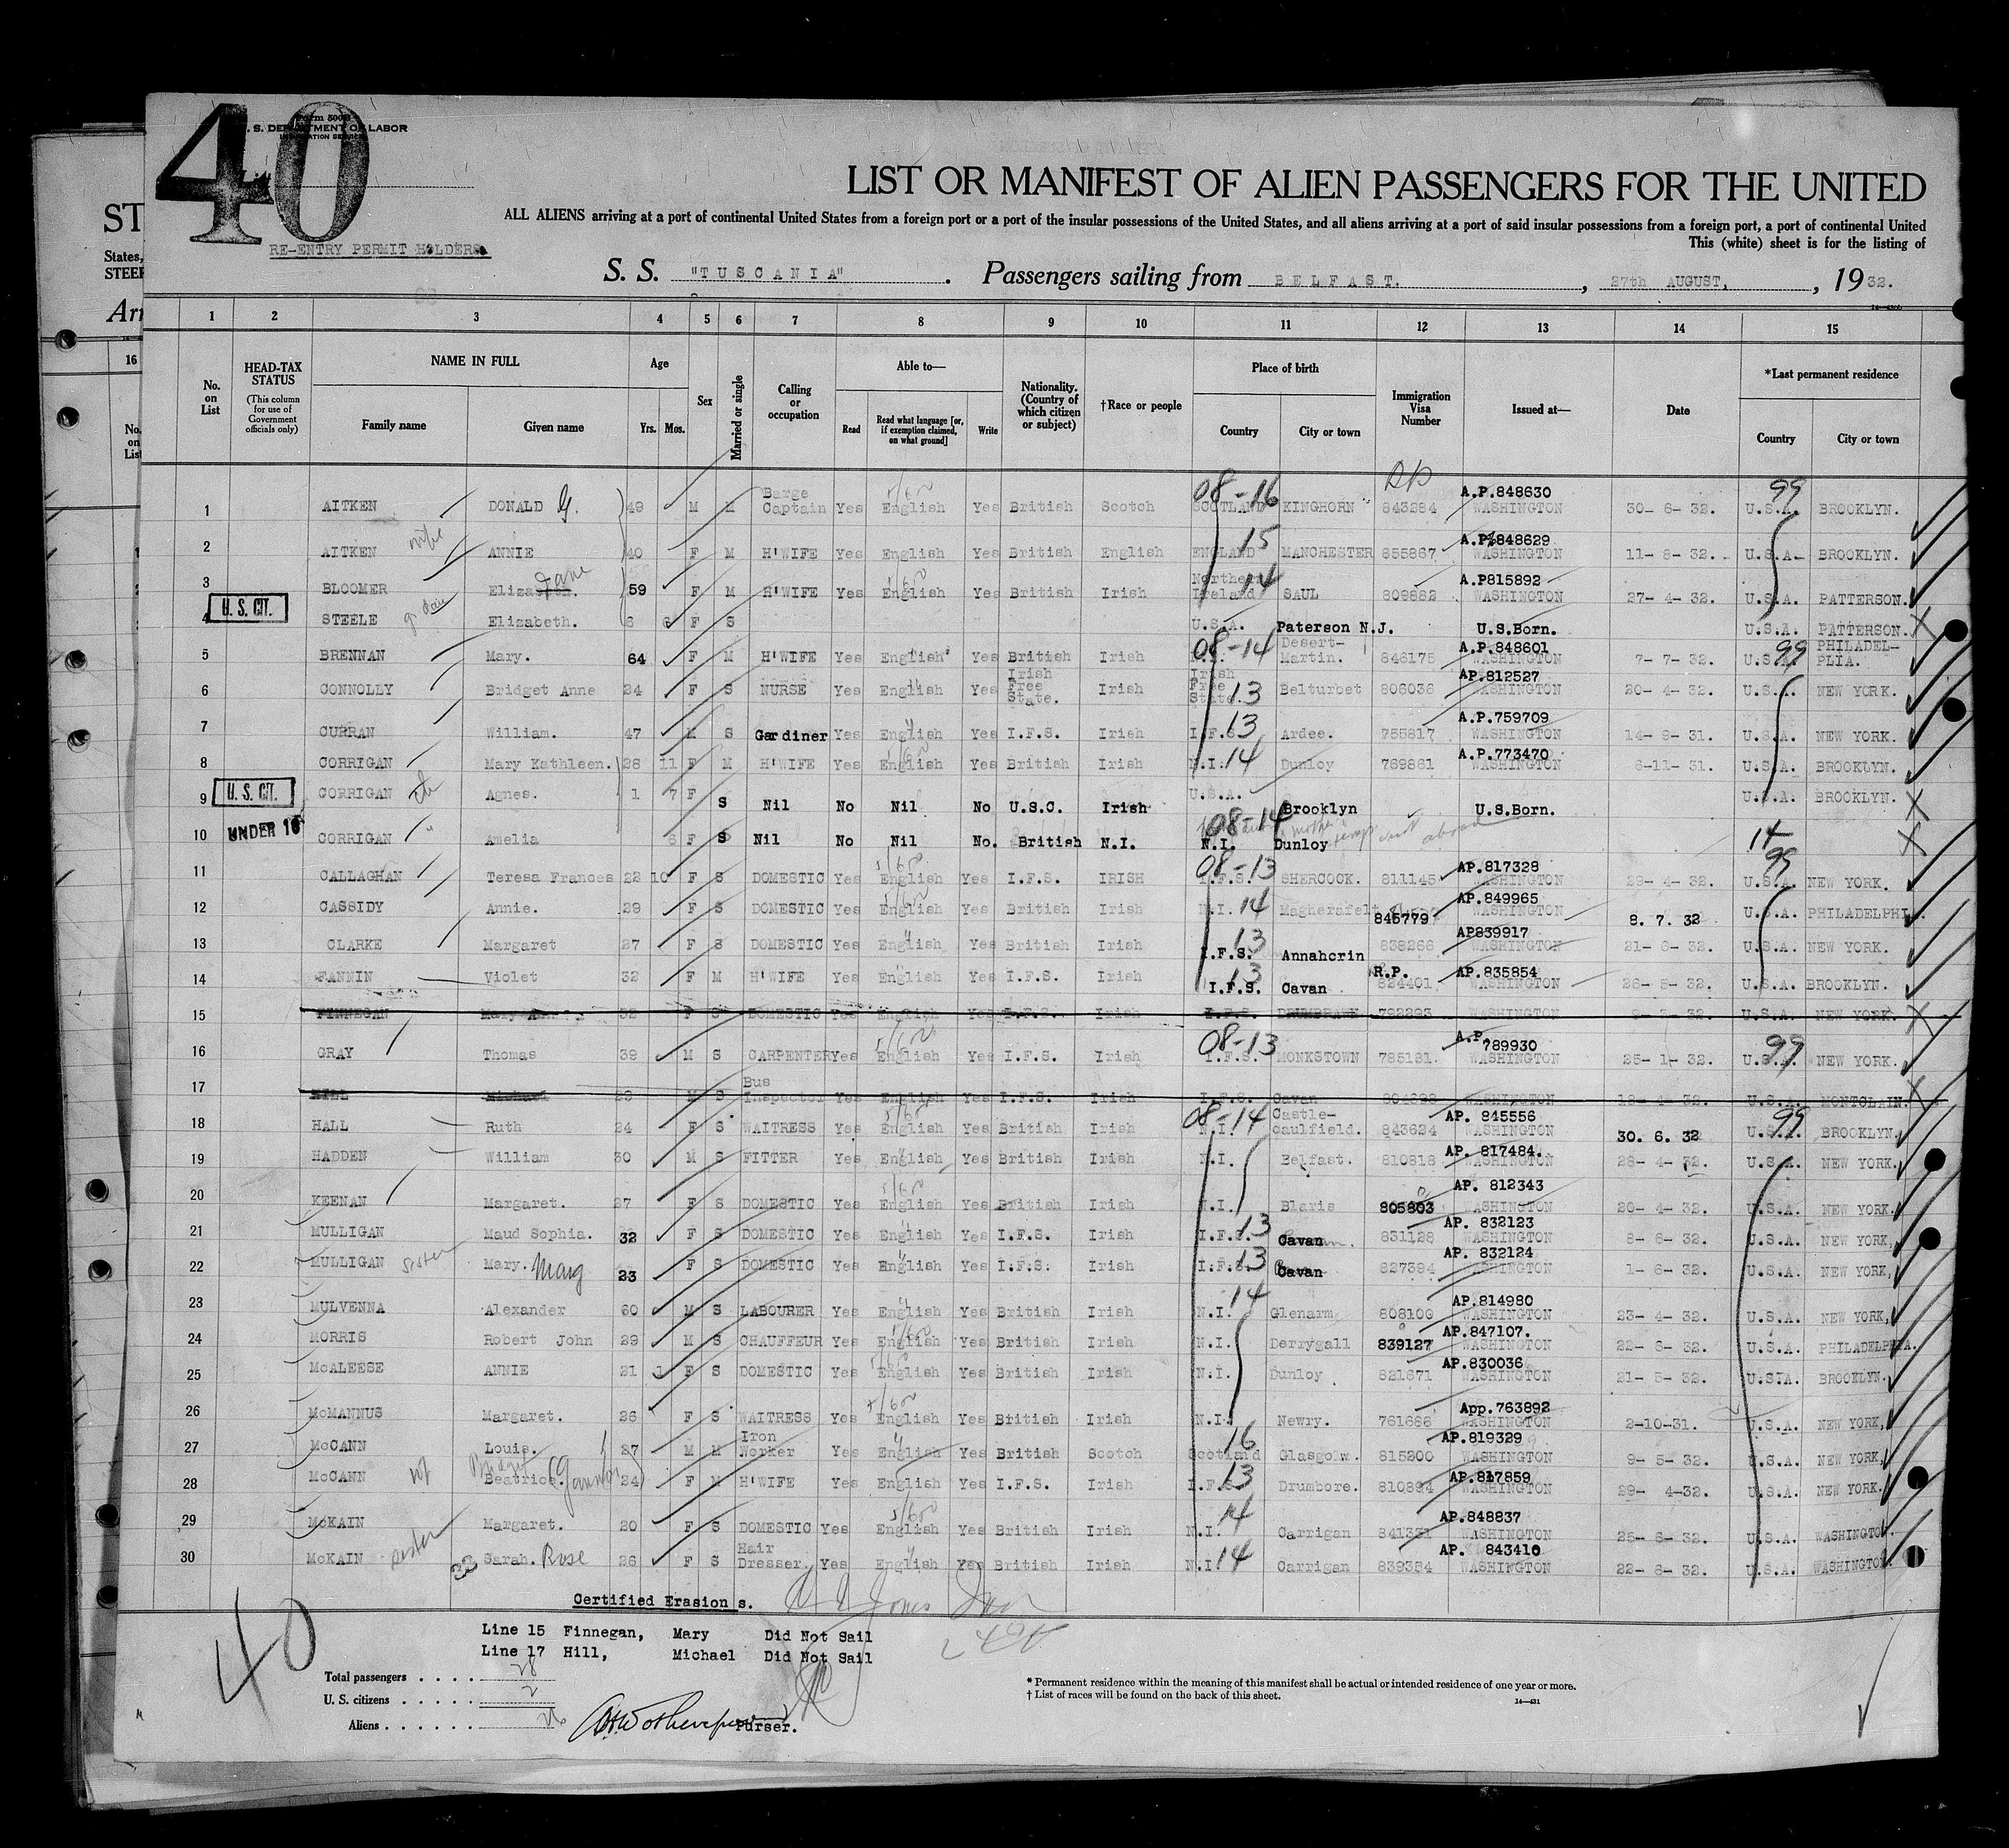 40
Form 500B
U. S. DEPARTMENT OF LABOR
IMMIGRATION SERVICE
List
RE-ENTRY PERMIT HOLDERS.
ST
States,
STEER
Arr
16
No.
on
List
LIST OR MANIFEST OF ALIEN PASSENGERS FOR THE UNITED
ALL ALIENS arriving at a port of continental United States from a foreign port or a port of the insular possessions of the United States, and all aliens arriving at a port of said insular possessions from a foreign port, a port of continental United
This (white) sheet is for the listing of
S. S. "TUSCANIA". Passengers sailing from BELFAST. , 27th AUGUST, , 1932.
1 2 3 4 5 6 7 8 9 10 11 12 13 14 15
No. on List
HEAD-TAX STATUS (This column for use of Government officials only)
NAME IN FULL Family name Given name
Age Yrs. Mos.
Sex
Married or single
Calling or occupation
Able to— Read Read what language [or, if exemption claimed, on what ground] Write
Nationality. (Country of which citizen or subject)
†Race or people
Place of birth Country City or town
Immigration Visa Number
Issued at—
Date
*Last permanent residence Country City or town
1 AITKEN DONALD G. 49 M M Barge Captain Yes English Yes British Scotch 08-16 SCOTLAND KINGHORN 843284 A.P.848630 WASHINGTON 30- 6- 32. 99 U.S.A. BROOKLYN.
2 AITKEN wife ANNIE 40 F M H'WIFE Yes English Yes British English 15 ENGLAND MANCHESTER 855867 A.P.848629 WASHINGTON 11- 8- 32. U.S.A. BROOKLYN.
3 BLOOMER Eliza Jane 59 F M H'WIFE Yes English Yes British Irish 14 Northern Ireland SAUL 809882 A.P815892 WASHINGTON 27- 4- 32. U.S.A. PATTERSON.
4 U. S. CIT. STEELE Elizabeth. 6 6 F S U.S.A. Paterson N.J. U.S.Born. U.S.A. PATTERSON.
5 BRENNAN Mary. 64 F M H'WIFE Yes English Yes British Irish 08-14 N.I. Desert-Martin. 846175 A.P.848601 WASHINGTON 7- 7- 32. 99 U.S.A. PHILADEL-PLIA.
6 CONNOLLY Bridget Anne 24 F S NURSE Yes English Yes Irish Free State. Irish Irish Free State. 13 Belturbet 808038 AP.812527 WASHINGTON 20- 4- 32. U.S.A. NEW YORK.
7 CURRAN William. 47 M S Gardiner Yes English Yes I.F.S. Irish I.F.S. 13 Ardee. 755817 A.P.759709 WASHINGTON 14- 9- 31. U.S.A. NEW YORK.
8 CORRIGAN Mary Kathleen. 28 11 F M H'WIFE Yes English Yes British Irish N.I. 14 Dunloy 769861 A.P.773470 WASHINGTON 6-11- 31. U.S.A. BROOKLYN.
9 U. S. CIT. CORRIGAN ch Agnes. 1 7 F S Nil No Nil No U.S.C. Irish U.S.A. Brooklyn U.S.Born. U.S.A. BROOKLYN.
10 UNDER 16 CORRIGAN " Amelia 6 F S Nil No Nil No. British N.I. 08-14 N.I. Dunloy 14
11 CALLAGHAN Teresa Frances 22 10 F S DOMESTIC Yes English Yes I.F.S. IRISH 08-13 I.F.S. SHERCOCK. 811145 AP.817328 WASHINGTON 29- 4- 32. 99 U.S.A. NEW YORK.
12 CASSIDY Annie. 29 F S DOMESTIC Yes English Yes British Irish N.I. 14 Magherafelt 845779 AP.849965 WASHINGTON 8. 7. 32 U.S.A. PHILADELPHIA.
13 CLARKE Margaret 27 F S DOMESTIC Yes English Yes British Irish 13 I.F.S. Annahcrin 838266 AP839917 WASHINGTON 21- 6- 32. U.S.A. NEW YORK.
14 FANNIN Violet 32 F M H'WIFE Yes English Yes I.F.S. Irish 13 I.F.S. Cavan R.P. 824401 AP.835854 WASHINGTON 26- 5- 32. U.S.A. BROOKLYN.
15 FINNEGAN Mary 32 F S DOMESTIC Yes English Yes I.F.S. Irish I.F.S. 792293 WASHINGTON U.S.A. NEW YORK.
16 GRAY Thomas 39 M S CARPENTER Yes English Yes I.F.S. Irish 08-13 I.F.S. MONKSTOWN 785131 A.P.789930 WASHINGTON 25- 1- 32. 99 U.S.A. NEW YORK.
17 HILL Michael M S Bus Inspector Yes English Yes I.F.S. Irish I.F.S. Cavan WASHINGTON 18- 4- 32. U.S.A. MONTCLAIN.
18 HALL Ruth 24 F S WAITRESS Yes English Yes British Irish 08-14 N.I. Castle-caulfield. 843624 AP. 845556 WASHINGTON 30. 6. 32 99 U.S.A. BROOKLYN,
19 HADDEN William 30 M S FITTER Yes English Yes British Irish N.I. Belfast. 810818 AP. 817484. WASHINGTON 28- 4- 32. U.S.A. NEW YORK.
20 KEENAN Margaret. 27 F S DOMESTIC Yes English Yes British Irish N.I. Blaris 805803 AP. 812343 WASHINGTON 20- 4- 32. U.S.A. NEW YORK.
21 MULLIGAN Maud Sophia. 32 F S DOMESTIC Yes English Yes I.F.S. Irish I.F.S. 13 Cavan 831128 AP. 832123 WASHINGTON 8- 6- 32. U.S.A. NEW YORK,
22 MULLIGAN sister Mary. Marg 23 F S DOMESTIC Yes English Yes I.F.S. Irish I.F.S. 13 Cavan 827394 AP. 832124 WASHINGTON 1- 6- 32. U.S.A. NEW YORK,
23 MULVENNA Alexander 60 M S LABOURER Yes English Yes British Irish 14 N.I. Glenarm 808100 AP.814980 WASHINGTON 23- 4- 32. U.S.A. NEW YORK,
24 MORRIS Robert John 29 M S CHAUFFEUR Yes English Yes British Irish N.I. Derrygall 839127 AP.847107. WASHINGTON 22- 6- 32. U.S.A. PHILADELPHIA.
25 McALEESE ANNIE 21 1 F S DOMESTIC Yes English Yes British Irish N.I. Dunloy 821671 AP.830036 WASHINGTON 21- 5- 32. U.S.A. BROOKLYN.
26 McMANNUS Margaret. 26 F S WAITRESS Yes English Yes British Irish N.I. Newry. 761686 App.763892 WASHINGTON 2-10-31. U.S.A. NEW YORK,
27 McCANN Louis. 27 M M Iron Worker Yes English Yes British Scotch 16 Scotland Glasgow. 815200 AP.819329 WASHINGTON 9- 5- 32. U.S.A. NEW YORK,
28 McCANN wf Bridget Beatrice. (Gannon) 24 F M H'WIFE Yes English Yes I.F.S. Irish I.F.S. 13 Drumbore. 810894 AP.817859 WASHINGTON 29- 4-32. U.S.A. NEW YORK.
29 McKAIN Margaret. 20 F S DOMESTIC Yes English Yes British Irish 14 N.I. Carrigan 841331 AP.848837 WASHINGTON 25- 6- 32. U.S.A. WASHINGTON.
30 McKAIN sister Sarah. Rose 26 F S Hair Dresser. Yes English Yes British Irish N.I. 14 Carrigan 839354 AP. 843410 WASHINGTON 22- 6- 32. U.S.A. WASHINGTON.
Certified Erasions.
40
Line 15 Finnegan, Mary Did Not Sail
Line 17 Hill, Michael Did Not Sail
Total passengers . . . . . 28
U. S. citizens . . . . . 2
Aliens . . . . . . 26
Purser.
* Permanent residence within the meaning of this manifest shall be actual or intended residence of one year or more.
† List of races will be found on the back of this sheet.
14—431